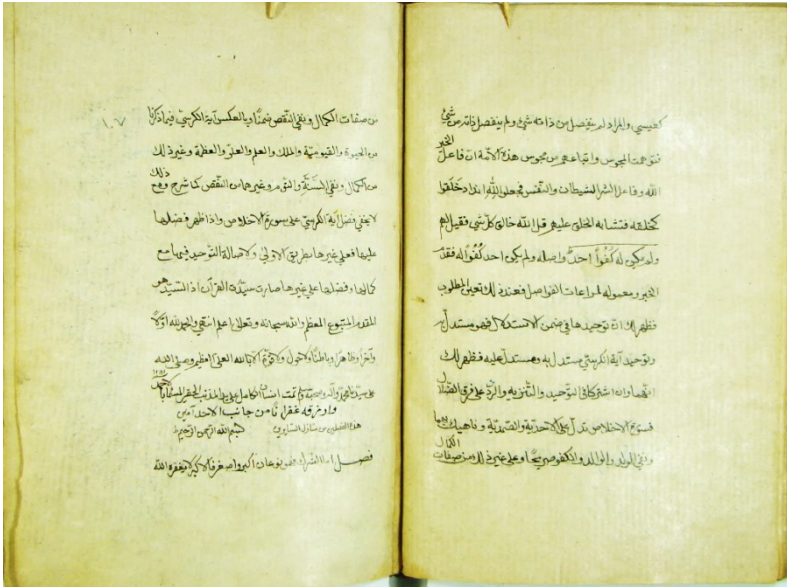 كعيسى والمراد لم ينفصل من ذاته شئ ولم ينفصل ذاته من شئ
فتوهمت المجوس واتباعهم من مجوس هذه الامة ان فاعل الخير
الله وفاعل الشر الشيطان والنفس فجعلوا لله اندادا خلقوا
كخلقه فتشابه الخلق عليهم قل الله خالق كل شئ فقيل لهم
ولم يكن له كفوا احد واصله ولم يكن احد كفوا له فقدم
الخبر ومعموله لمراعات الفواصل فعند ذلك تعين المطلوب
فظهر لك ان توحيدها في ضمن الاستدلال فهو مستدل به
وتوحيد آية الكرسي مستدل به ومستدل عليه فظهر لك
انهما وان اشتركا في التوحيد والتنزيه والرد على فرق الضلال
فسورة الاخلاص تدل على الاحدية والصمدية وناهيك بهما
ونفي الولد والوالد والكفو صريحا وعلى غير ذلك من صفات الكمال
١٠٧
من صفات الكمال ونفي النقص ضمنا وبالعكس آية الكرسي فيما ذكرنا
من الحيوة والقيومية والملك والعلم والعلو والعظمة وغير ذلك
من الكمال ونفي السنة والنوم وغيرهما من النقص كما شرح ومع ذلك
لا يخفى فضل آية الكرسي على سورة الاخلاص واذا ظهر فضلها
عليها فعلى غيرها بطريق الاولى ولاصالة التوحيد فيها مع
كمالها وفضلها على غيرها صارت سيدة القرآن اذ السيد هو
المقدم المتبوع المعظم والله سبحانه وتعالى اعلم انتهى والحمد لله اولا
وآخرا وظاهرا وباطنا ولا حول ولا قوة الا بالله العلي العظيم وصلى الله
على سيدنا محمد وآله وصحبه وسلم تمت الكامل على يد المذنب الحقير
وارزقه غفرانا من جانب الاحد آمين
هذا الفصل من منازل السايرين بسم الله الرحمن الرحيم
فصل اما الشرك فهو نوعان اكبر واصغر فالاكبر لا يغفره الله